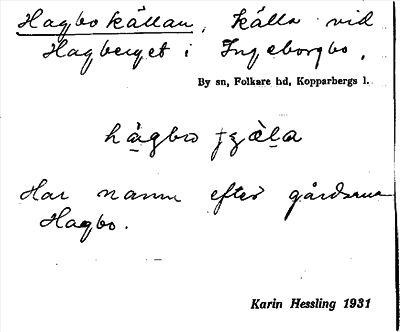 Hagbo källan, källa vid
Hagberget i Ingeborgbo.
By sn, Folkare hd, Kopparbergs l.
Har namn efter gårdarna
Hagbo.
Karin Hessling 1931